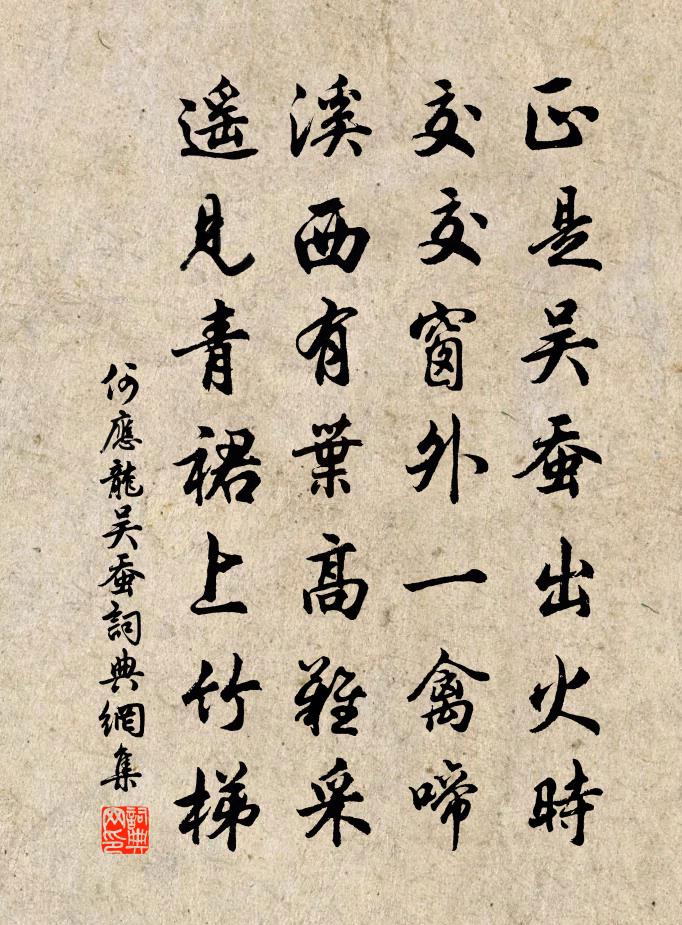 正是吴蚕出火時
交交窗外一禽啼
溪西有葉高難采
遥見青裙上竹梯
何應龍吴蚕詞典網集
詞典网印